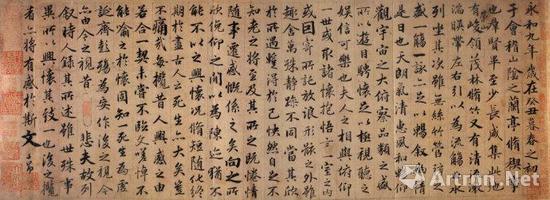 永和九年歲在癸丑暮春之初會
于會稽山陰之蘭亭脩禊事
也羣賢畢至少長咸集此地
有崇山峻領茂林脩竹又有清流激
湍暎帶左右引以為流觴曲水
列坐其次雖無絲竹管弦之
盛一觴一詠亦足以暢敘幽情
是日也天朗氣清惠風和暢仰
觀宇宙之大俯察品類之盛
所以遊目騁懷足以極視聽之
娛信可樂也夫人之相與俯仰
一世或取諸懷抱悟言一室之內
或因寄所託放浪形骸之外雖
趣舍萬殊靜躁不同當其欣
於所遇暫得於己怏然自足不
知老之將至及其所之既惓情
隨事遷感慨係之矣向之所
欣俛仰之間以為陳迹猶不
能不以之興懷況脩短隨化終
期於盡古人云死生亦大矣豈
不痛哉每攬昔人興感之由
若合一契未嘗不臨文嗟悼不
能喻之於懷固知一死生為虛
誕齊彭殤為妄作後之視今
亦由今之視昔悲夫故列
敘時人錄其所述雖世殊事
異所以興懷其致一也後之攬
者亦將有感於斯文
Artron.Net